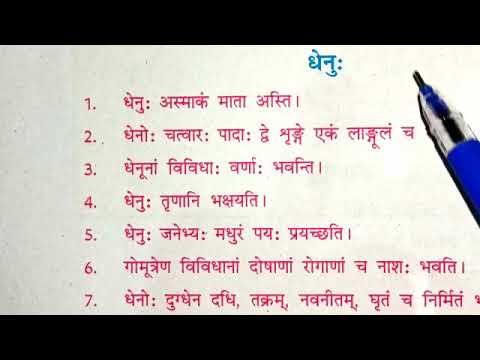 धेनुः
1. धेनुः अस्माकं माता अस्ति।
2. धेनोः चत्वारः पादाः द्वे शृङ्गे एकं लाङ्गूलं च
3. धेनूनां विविधाः वर्णाः भवन्ति।
4. धेनुः तृणानि भक्षयति।
5. धेनुः जनेभ्यः मधुरं पयः प्रयच्छति।
6. गोमूत्रेण विविधानां दोषाणां रोगाणां च नाशः भवति।
7. धेनोः दुग्धेन दधि, तक्रम्, नवनीतम्, घृतं च निर्मितं